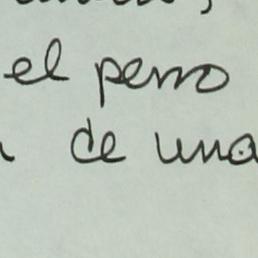 el perro
de una